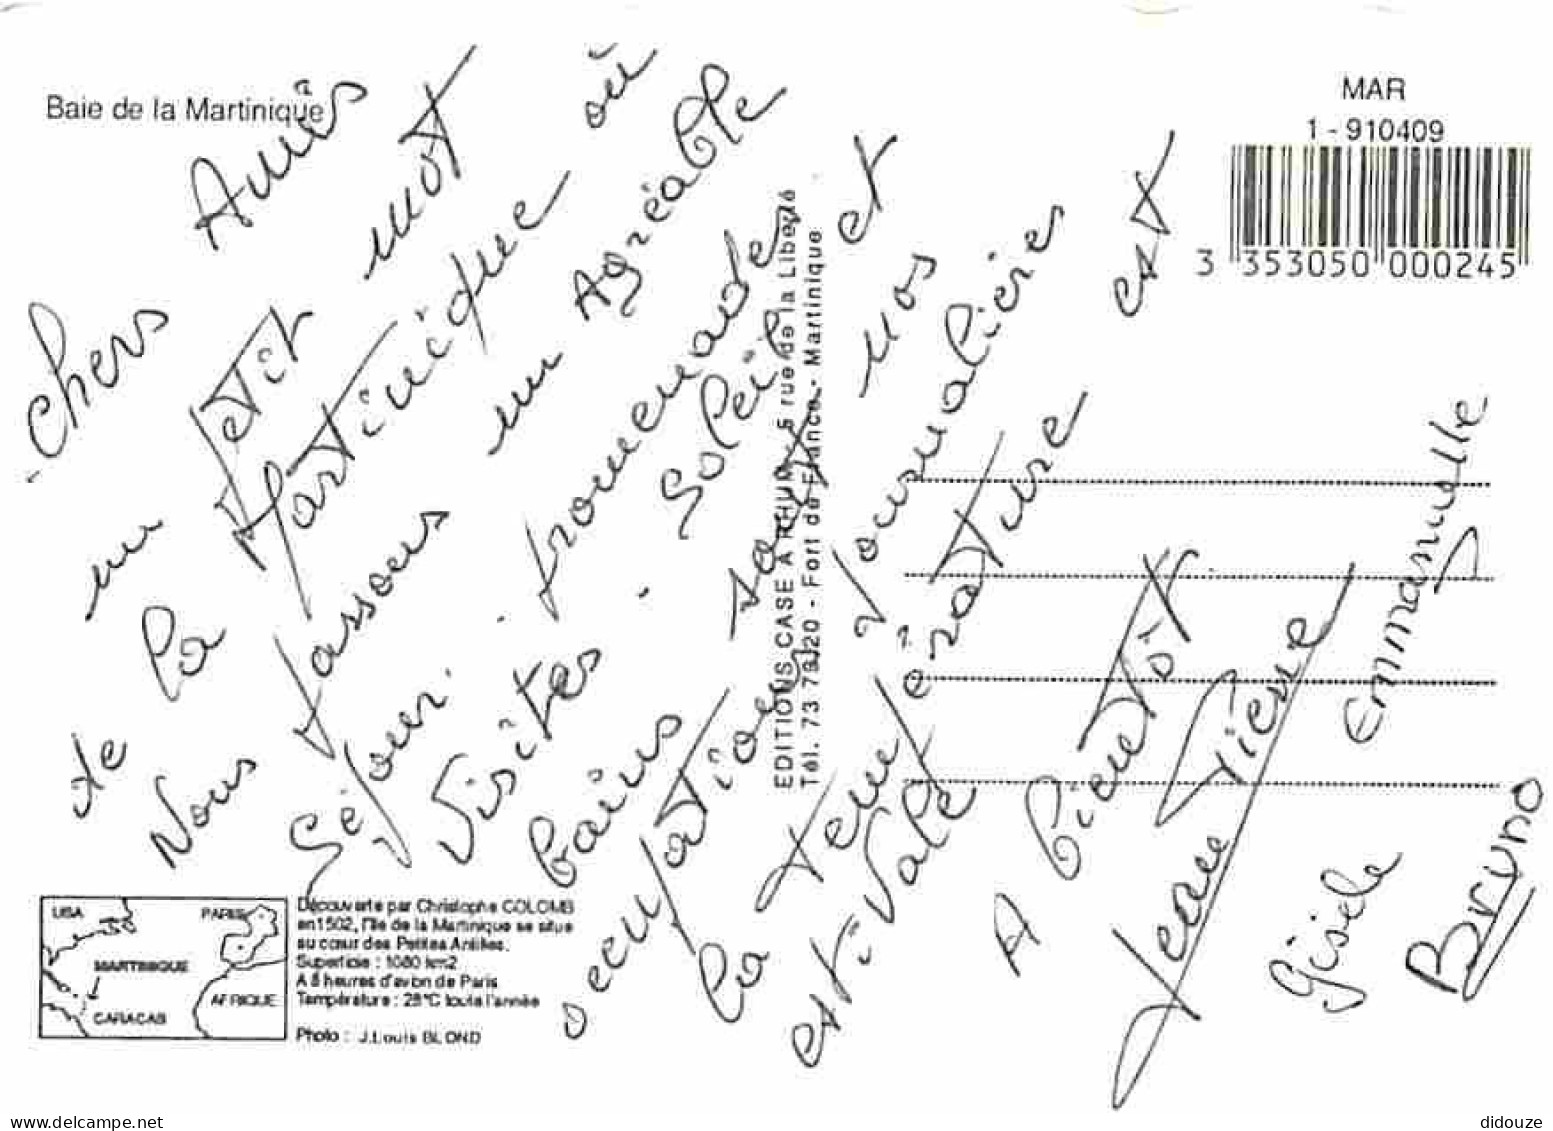 Baie de la Martinique
MAR
1 - 910409
3 353050 000245
Chers Amis
un Petit mot
de la Martinique où
Nous Passons un Agréable
Séjour. Promenades et
Visites. Soleil
bains sont nos
occupations Journalières
La Température est
estivale
A bientôt
Jean Pierre
Gisèle Emmanuelle
Bruno
EDITIONS CASE A RHUM - 5 rue de la Liberté
Tél. 73 73 20 - Fort de France - Martinique
USA
PARIS
MARTINIQUE
AFRIQUE
CARACAS
Découverte par Christophe COLOMB
en 1502, l'île de la Martinique se situe
au cœur des Petites Antilles.
Superficie : 1080 km2
A 8 heures d'avion de Paris
Température : 28°C toute l'année
Photo : J.Louis BLOND
https://www.delcampe.net
didouze